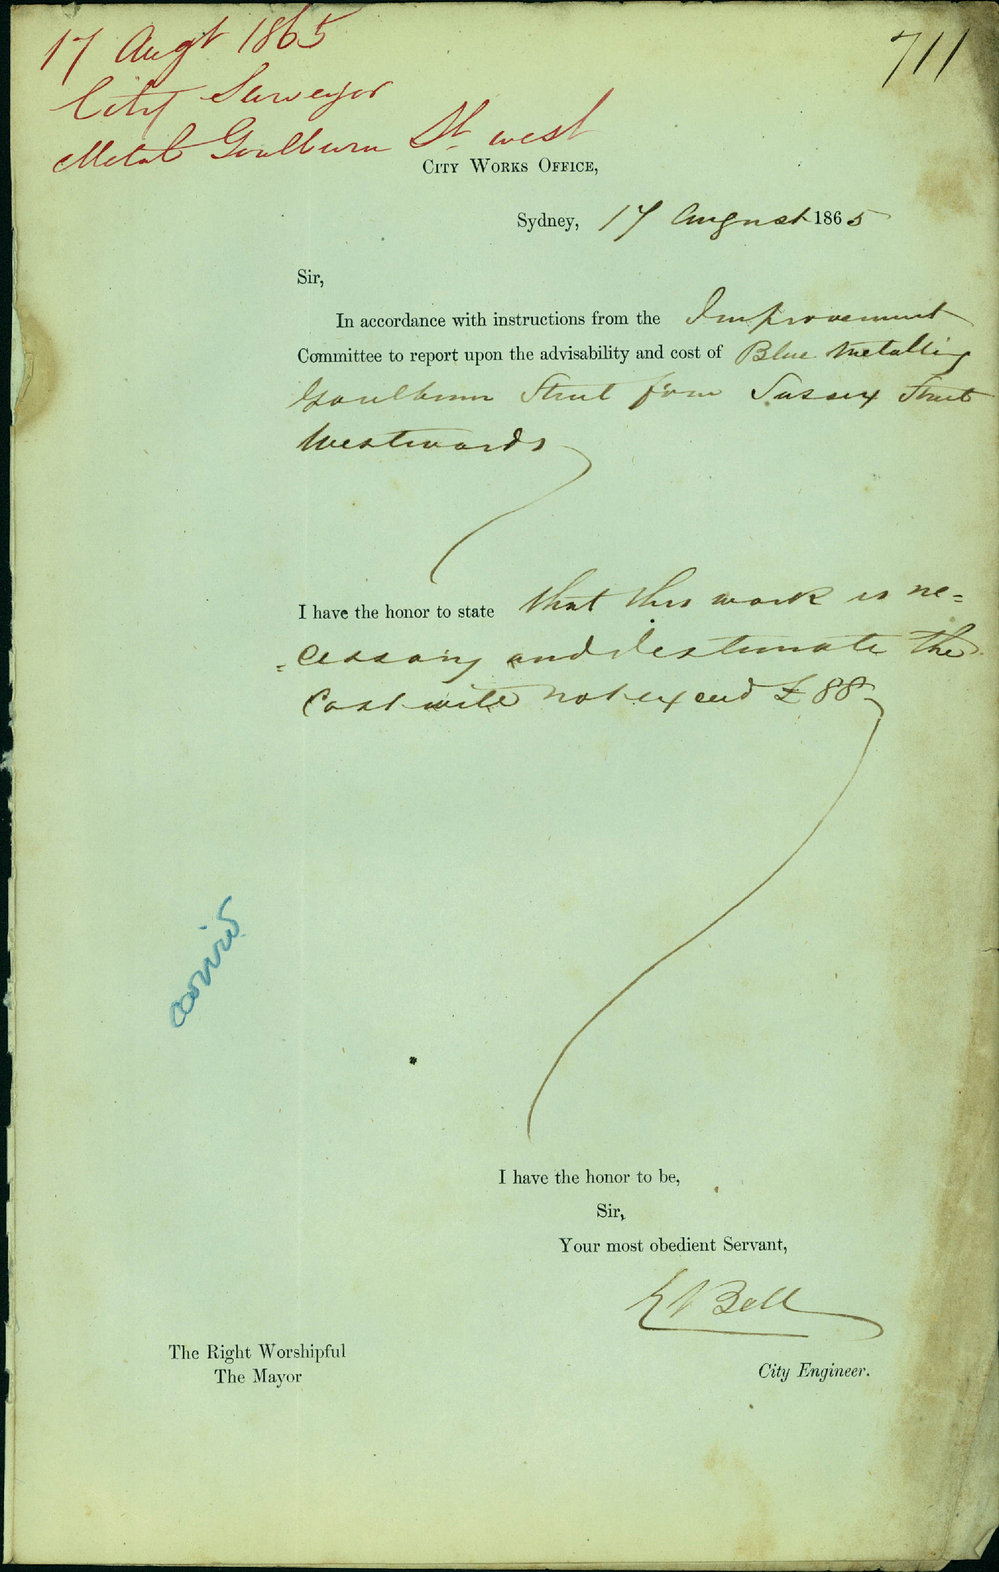 17 Augt 1865
711
City Surveyor
Metal Goulburn St. west
CITY WORKS OFFICE,
Sydney, 17 August 1865
Sir,
In accordance with instructions from the Improvement
Committee to report upon the advisability and cost of Blue Metalling
Goulburn Street from Sussex Street
Westwards
I have the honor to state that this work is ne=
=cessary and I estimate the
Cost will not exceed £88
I have the honor to be,
Sir,
Your most obedient Servant,
E Bell
The Right Worshipful
The Mayor
City Engineer.